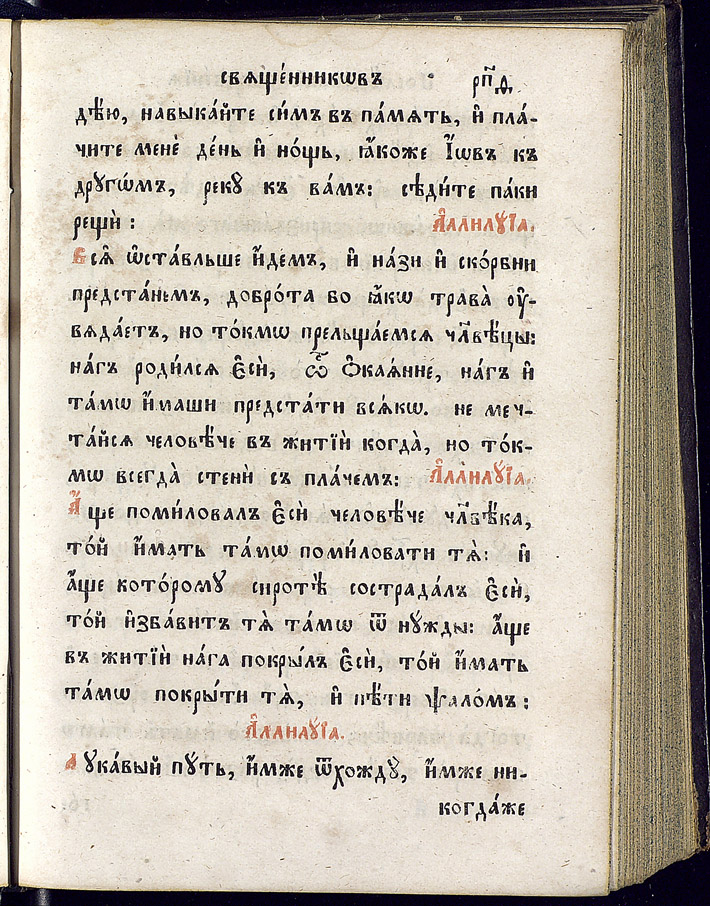 свѧще́нникѡвъ · рп҃д
дѣ́ю, навыка́йте си́мъ въ па́мѧть, и҆ пла́-
чите менѐ де́нь и҆ но́щь, ꙗ҆́коже І҆́ѡвъ къ
дрꙋгѡ́мъ, рекꙋ̀ къ ва́мъ: сѣди́те па́ки
рещѝ: А҆ллилꙋ́їа.
Всѧ̑ ѡ҆ста́вльше и҆́демъ, и҆ на́зи и҆ ско́рбни
предста́немъ, добро́та бо ꙗ҆́кѡ трава̀ ᲂу҆-
вѧда́етъ, но то́кмѡ прельща́емсѧ чл҃вѣ́цы:
на́гъ роди́лсѧ є҆сѝ, ѽ ѻ҆каѧ́нне, на́гъ и҆
та́мѡ и҆́маши предста́ти всѧ́кѡ. не меч-
та́йсѧ человѣ́че въ житїѝ когда̀, но то́к-
мѡ всегда̀ стенѝ съ пла́чемъ: А҆ллилꙋ́їа.
А҆́ще поми́ловалъ є҆сѝ человѣ́че чл҃вѣ́ка,
то́й и҆́мать та́мѡ поми́ловати тѧ̀: и҆
а҆́ще кото́ромꙋ сиротѣ̀ сострада́лъ є҆сѝ,
то́й и҆зба́витъ тѧ̀ та́мѡ ѿ нꙋ́жды: а҆́ще
въ житїѝ на́га покры́лъ є҆сѝ, то́й и҆́мать
та́мѡ покры́ти тѧ̀, и҆ пѣ́ти ѱало́мъ:
А҆ллилꙋ́їа.
Лꙋка́вый пꙋ́ть, и҆́мже ѿхождꙋ̀, и҆́мже ни-
когда́же